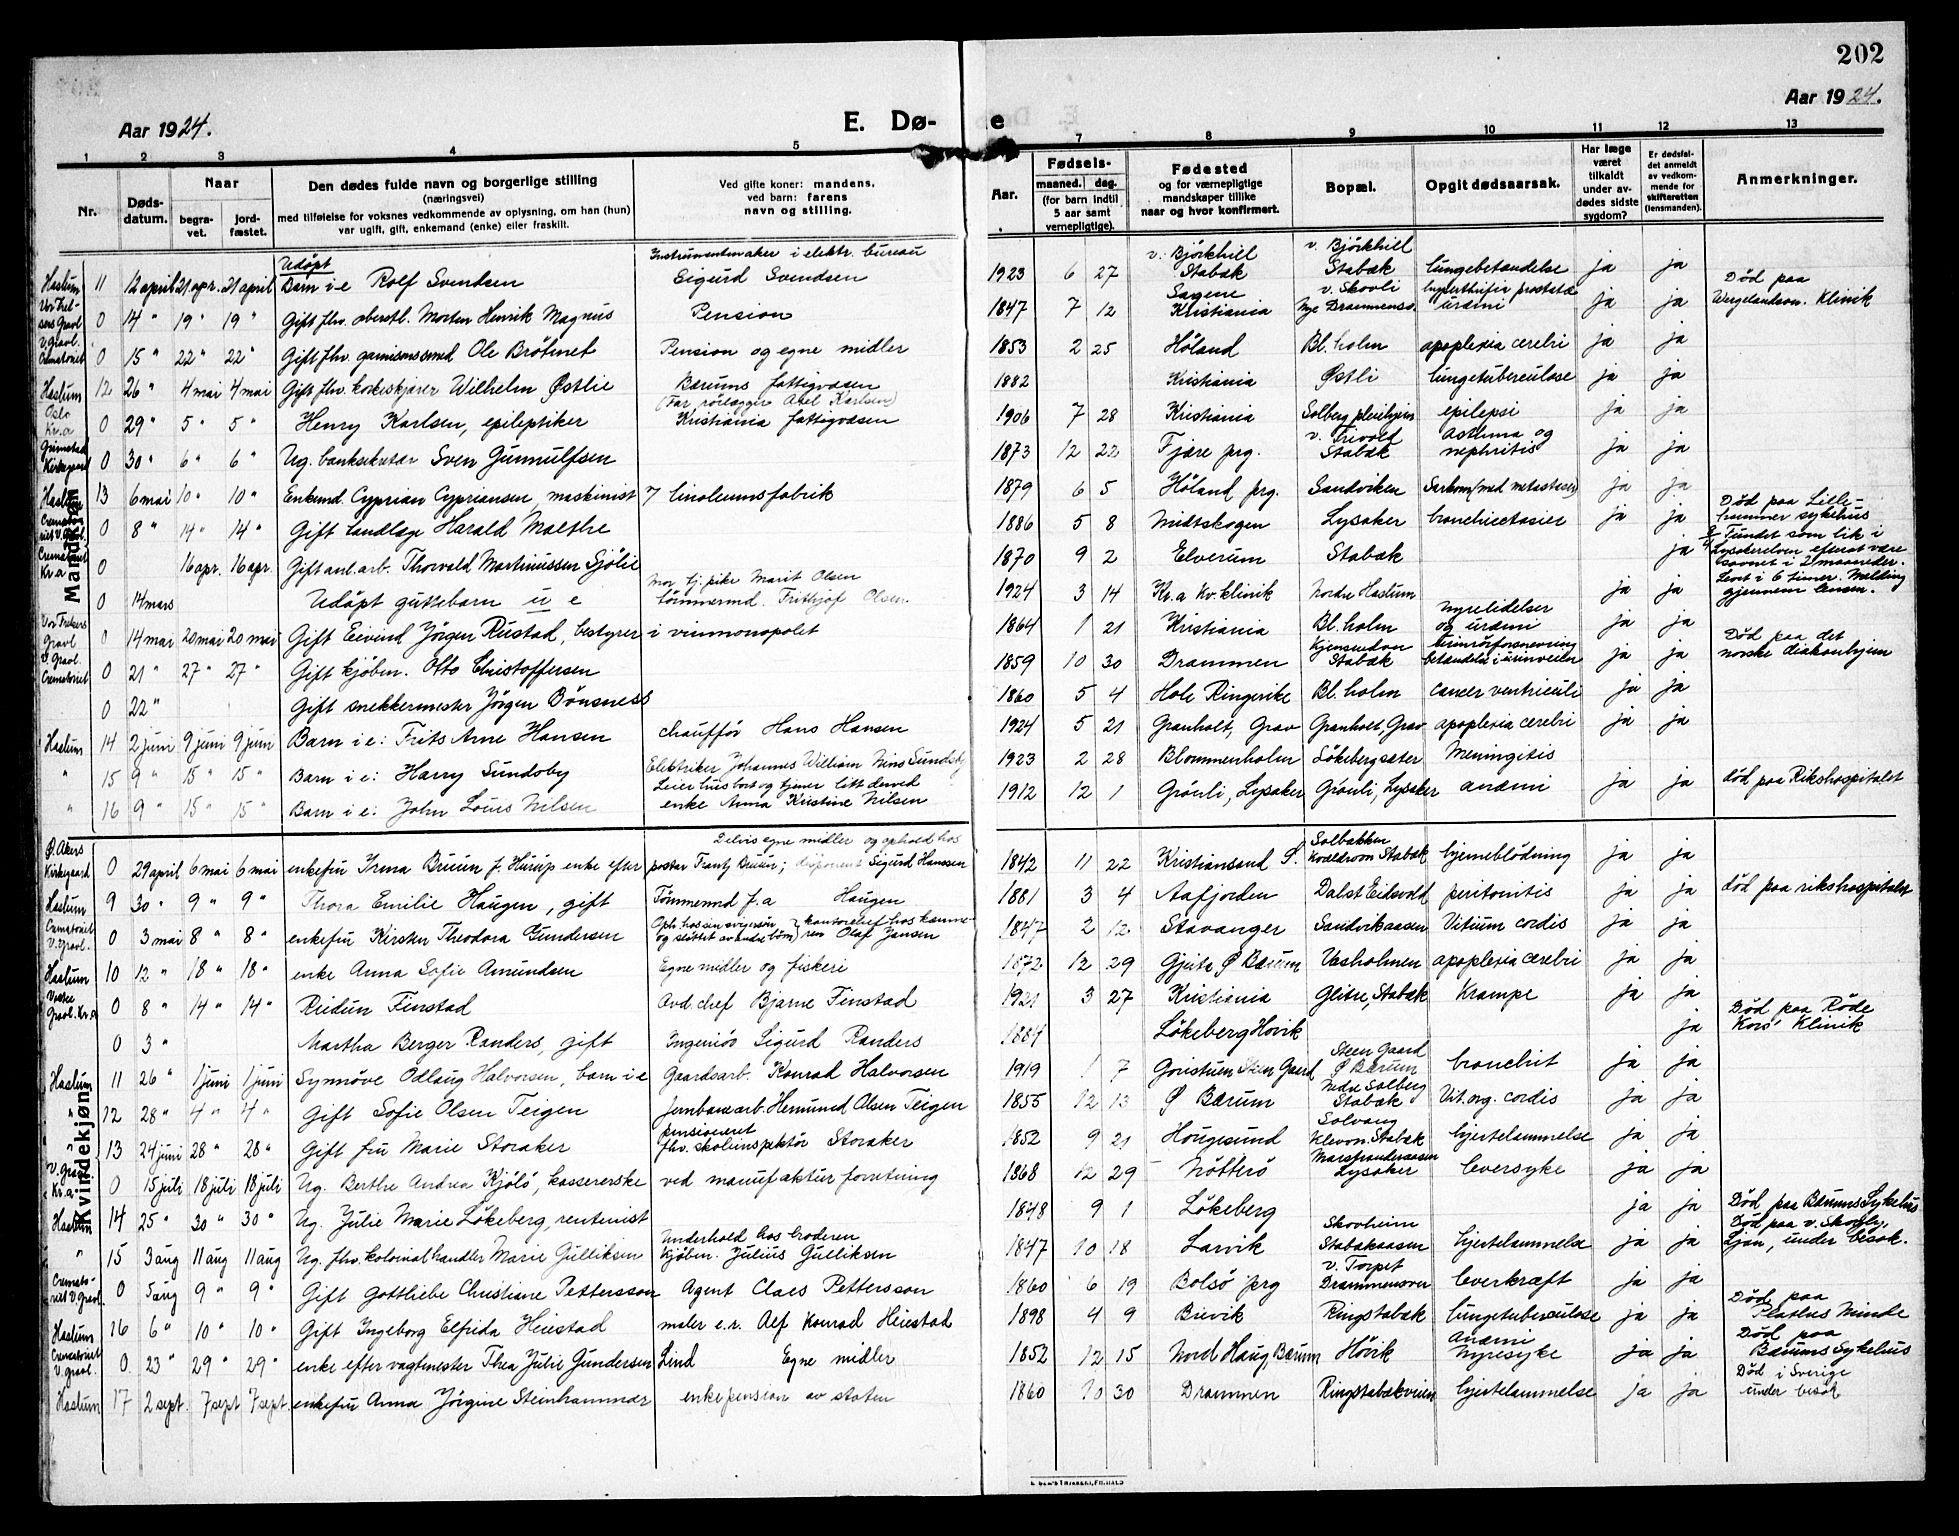 202
Aar 1924.
E. Dø-
e
Aar 1924.
1 2 3 4 5 7 8 9 10 11 12 13
Nr.
Døds-
datum.
Naar
begra-
vet.
jord-
fæstet.
Den dødes fulde navn og borgerlige stilling
(næringsvei)
med tilføielse for voksnes vedkommende av oplysning, om han (hun)
var ugift, gift, enkemand (enke) eller fraskilt.
Ved gifte koner: mandens,
ved barn: farens
navn og stilling.
Aar.
Fødsels-
maaned. dag.
(for barn indtil
5 aar samt
vernepligtige).
Fødested
og for værnepligtige
mandskaper tillike
naar og hvor konfirmert.
Bopæl.
Opgit dødsaarsak.
Har læge
været
tilkaldt
under av-
dødes sidste
sygdom?
Er dødsfal-
det anmeldt
av vedkom-
mende for
skifteretten
(lensmanden).
Anmerkninger.
Mandkjøn
Haslum 11 12 april 21 apr. 21 april Udøpt Barn i e Rolf Svendsen Instrumentmaker i elektr. bureau Sigurd Svendsen 1923 6 27 v. Björkhill Stabæk v. Björkhill Stabæk lungebetændelse ja ja
Vor Frel-
sers Gravl. 0 14 " 19 " 19 " Gift fhv. oberstl. Morten Henrik Magnus Pension 1847 7 12 Sagene Kristiania v. Skovli Nye Drammensv. hyperthrofia prostatæ urämi ja ja Død paa Wergelandsv. Klinik
V. Gravl.
Crematoriet 0 15 " 22 " 22 " Gift fhv. garnisonssmed Ole Bröttnet Pension og egne midler 1853 2 25 Höland Bl. holm apoplexia cerebri ja ja
Haslum 12 26 " 4 mai 4 mai Gift fhv. kokeskjører Wilhelm Østlie Bærums fattigvæsen 1882 Kristiania Østli lungetuberculose ja ja
Oslo
Kr.a 0 29 " 5 " 5 " Henry Karlsen, epileptiker (Far rørlægger Axel Karlsen) Kristiania fattigvæsen 1906 7 28 Kristiania Solberg pleiehjem epilepsi ja ja
Grimstad
Kirkegaard 0 30 " 6 " 6 " Ug. banksekretær Sven Gunnulfsen 1873 12 22 Fjære prg. v. Frivold Stabæk Asthma og nephritis ja ja
Haslum 13 6 mai 10 " 10 " Enkemd. Cyprian Cypriansen, maskinist i linoleumsfabrik 1879 6 5 Höland prg. Sandviken Sarkom (med metastaser) ja ja
Cremato-
riet V. Gravl. 0 8 " 14 " 14 " Gift tandlæge Harald Maethe 1886 5 8 Midtskogen Lysaker bronchiectasier ja ja Død paa Lille-
hammer sykehus
Crematoriet
Kr.a 0 16 apr. 16 apr. Gift anl. arb. Thorvald Martinussen Sjölie 1870 9 2 Elverum Stabæk ja Fundet som lik i Lysakerelven efterat være savnet i 2 maaneder.
0 14 mars Udöpt guttebarn u e Mor tj. pike Marit Olsen tömmermd. Frithjof Olsen 1924 3 14 Kr.a Kv. klinik Nordre Haslum ja ja Levet i 6 timer. Melding gjennem lensm.
Vor Frelsers
Gravl. 0 14 mai 20 mai 20 mai Gift Eivind Jörgen Rustad, bestyrer i vinmonopolet 1864 1 21 Kristiania Bl. holm nyrelidelser og urämi ja ja
V. Gravl.
Crematoriet 0 21 " 27 " 27 " Gift kjöbm. Otto Christoffersen 1859 10 30 Drammen Stabæk betændelse i urinveien ja ja Död paa det norske diakonhjem
0 22 " Gift snekkermester Jörgen Bönsnes 1860 5 4 Hole Ringerike Bl. holm cancer ventriculi ja ja
Haslum 14 2 juni 9 juni 9 juni Barn i e: Frits Arne Hansen chauffør Hans Hansen 1924 5 21 Granholt, Grav Granholt, Grav apoplexia cerebri ja ja
" 15 9 " 15 " 15 " Barn i e: Harry Sundby Elektriker Johannes William Sundby 1923 2 28 Blommenholm Lökebergsæter Meningitis
" 16 9 " 15 " 15 " Barn i e: John Louis Nilsen Leier hus bort og tjener litt derved enke Anna Kristine Nilsen 1912 12 1 Grönli, Lysaker Grönli, Lysaker anæmi ja ja död paa Rikshospitalet
Kvindekjøn
Ø. Akers
Kirkegaard 0 29 april 6 mai 6 mai enkefru Irma Bruun f. Hurup enke efter pastor Frantz Bruun; Delvis egne midler og ophold hos disponent Sigurd Hanssen 1842 11 22 Kristiansand S. Solbakken Kveldrovn Stabæk hjerneblödning ja ja
Haslum 9 30 " 9 " 9 " Thora Emilie Haugen, gift Tömmermd J.a Haugen 1881 3 4 Aafjorden Dalst Eidsvold peritonitis ja ja död paa rikshospitalet
Crematoriet
V. Gravl. 0 3 mai 8 " 8 " enkefru Kirsten Theodora Gundersen Oph. hos sin svigersön og støttet av andre barn kontorchef hos kæmne-
ren Olaf Jansen 1847 2 12 Stavanger Sandvikaasen Vitium cordis ja ja
Haslum 10 12 " 18 " 18 " enke Anna Sofie Amundsen Egne midler og fiskeri 1872 12 29 Gjeite Ø Bærum Væsholmen apoplexia cerebri ja ja
Vestre
Gravl. Kr.a 0 8 " 14 " 14 " Reidun Finstad Avd. chef Bjarne Finstad 1921 3 27 Kristiania Glitre, Stabæk Krampe ja ja
0 3 " Martha Berger Randers, gift Ingeniör Sigurd Randers 1884 Lökeberg Hövik ja Död paa Røde Kors' Klinik
Haslum 11 26 " 1 juni 1 juni Synnöve Odlaug Halvorsen, barn i e Gaardsarb. Konrad Halvorsen 1919 1 7 Steen Gaard Steen Gaard Ø Bærum bronchit ja ja
" 12 28 " 4 " 4 " Gift Sofie Olsen Teigen Jernbanearb. Henmund Olsen Teigen 1855 12 13 Ø Bærum Nedre Solberg Stabæk Vit. org. cordis ja ja
" 13 24 juni 28 " 28 " Gift fru Marie Storaker pensioneret fhv. skoleinspektör Storaker 1852 9 21 Hougesund Solvang Klevvn. Stabæk hjertelammelse ja ja
V. Gravl.
Kr.a 0 15 juli 18 juli 18 juli Ug. Berthe Andrea Kjölö, kassererske ved manufakturforretning 1868 12 29 Nötterö Marstranderaasen Lysaker leversyke ja ja
Haslum 14 25 " 30 " 30 " Ug. Julie Marie Lökeberg, rentenist 1848 9 1 Lökeberg ja ja Död paa Bærums Sykehus
" 15 3 aug 11 aug 11 aug Ug. fhv. kolonialhandler Marie Gulliksen Underhold hos broderen Kjöbm. Julius Gulliksen 1847 10 18 Larvik Skovheim Stabækaasen hjertelammelse ja ja Död paa v. Skogly, Ljan, under besøk.
Cremato-
riet V. Gravl. 0 5 aug 9 " 9 " Gift Gottliebe Christiane Pettersson Agent Claes Pettersson 1860 6 19 Bolsö prg v. Torpet Drammensvn leverkræft ja ja
Haslum 16 6 " 10 " 10 " Gift Ingeborg Elfrida Heiestad maler e.r. Alf Konrad Heiestad 1898 4 9 Brevik Ringstabæk lungetuberculose ja ja Död paa Platous Minde
Crematoriet
V. gravl. 0 23 " 29 " 29 " enke efter vagtmester Thea Julie Gundersen Lind Egne midler 1852 12 15 Nord Haug Bærum Hövik anæmi nyresyke ja ja Död paa Bærums Sykehus
Haslum 17 2 sept. 7 sept 7 sept. enkefru Anna Jörgine Steinhammar enkepension av staten 1860 10 30 Drammen Ringstabækveien hjertelammelse ja ja Död i Sverige under besök